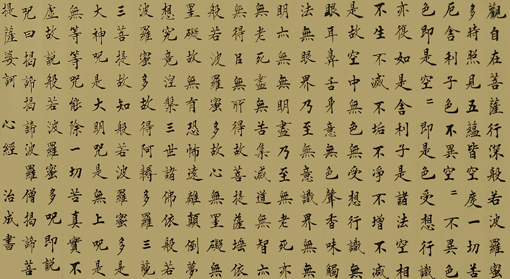 觀自在菩薩行深般若波羅蜜
多時照見五蘊皆空度一切苦
厄舍利子色不異空=不異色
色即是空=即是色受想行識
亦復如是舍利子是諸法空相
不生不滅不垢不淨不增不減
是故空中無色無受想行識無
眼耳鼻舌身意無色聲香味觸
法無眼界乃至無意識界無無
明亦無無明盡乃至無老死亦
無老死盡無苦集滅道無智亦
無得以無所得故菩提薩埵依
般若波羅蜜多故心無罣礙無
罣礙故無有恐怖遠離顛倒夢
想究竟涅槃三世諸佛依般若
波羅蜜多故得阿耨多羅三藐
三菩提故知般若波羅蜜多是
大神咒是大明咒是無上咒是
無等等咒能除一切苦真實不
虛故說般若波羅蜜多咒即說
咒曰揭諦揭諦波羅僧揭諦菩
提薩婆訶 心經 治成書